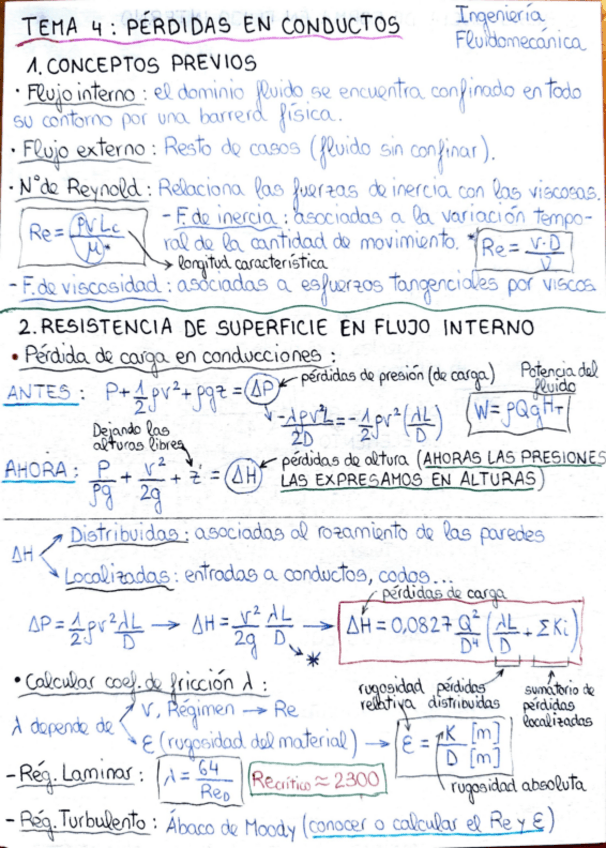 TEMA 4: PÉRDIDAS EN CONDUCTOS
Ingeniería
Fluidomecánica
1. CONCEPTOS PREVIOS
· Flujo interno: el dominio fluido se encuentra confinado en todo
su contorno por una barrera física.
· Flujo externo: Resto de casos (fluido sin confinar).
· Nº de Reynold: Relaciona las fuerzas de inercia con las viscosas.
Re = ρVLc/μ*
→ longitud característica
- F. de inercia: asociadas a la variación tempo-
ral de la cantidad de movimiento.
* Re = v·D/ν
- F. de viscosidad: asociadas a esfuerzos tangenciales por viscos.
2. RESISTENCIA DE SUPERFICIE EN FLUJO INTERNO
• Pérdida de carga en conducciones:
ANTES: P + 1/2 ρv² + ρgz = ΔP ← pérdidas de presión (de carga)
-λρv²L/2D = -1/2 ρv² (λL/D)
Potencia del
fluido
W = ρQgH_T
Dejando las
alturas libres
AHORA: P/ρg + v²/2g + z = ΔH ← pérdidas de altura (AHORAS LAS PRESIONES
LAS EXPRESAMOS EN ALTURAS)
ΔH
Distribuidas: asociadas al rozamiento de las paredes
Localizadas: entradas a conductos, codos...
pérdidas de carga
ΔP = 1/2 ρv² λL/D → ΔH = v²/2g λL/D → ΔH = 0,0827 Q²/D⁴ (λL/D + ΣKi)
*
• Calcular coef. de fricción λ:
rugosidad
relativa
pérdidas
distribuidas
sumatorio de
pérdidas
localizadas
λ depende de
V, Régimen → Re
ε (rugosidad del material) → ε = K/D [m]/[m]
rugosidad absoluta
- Rég. Laminar: λ = 64/Re_D
Re crítico ≈ 2300
- Rég. Turbulento: Ábaco de Moody (conocer o calcular el Re y ε)